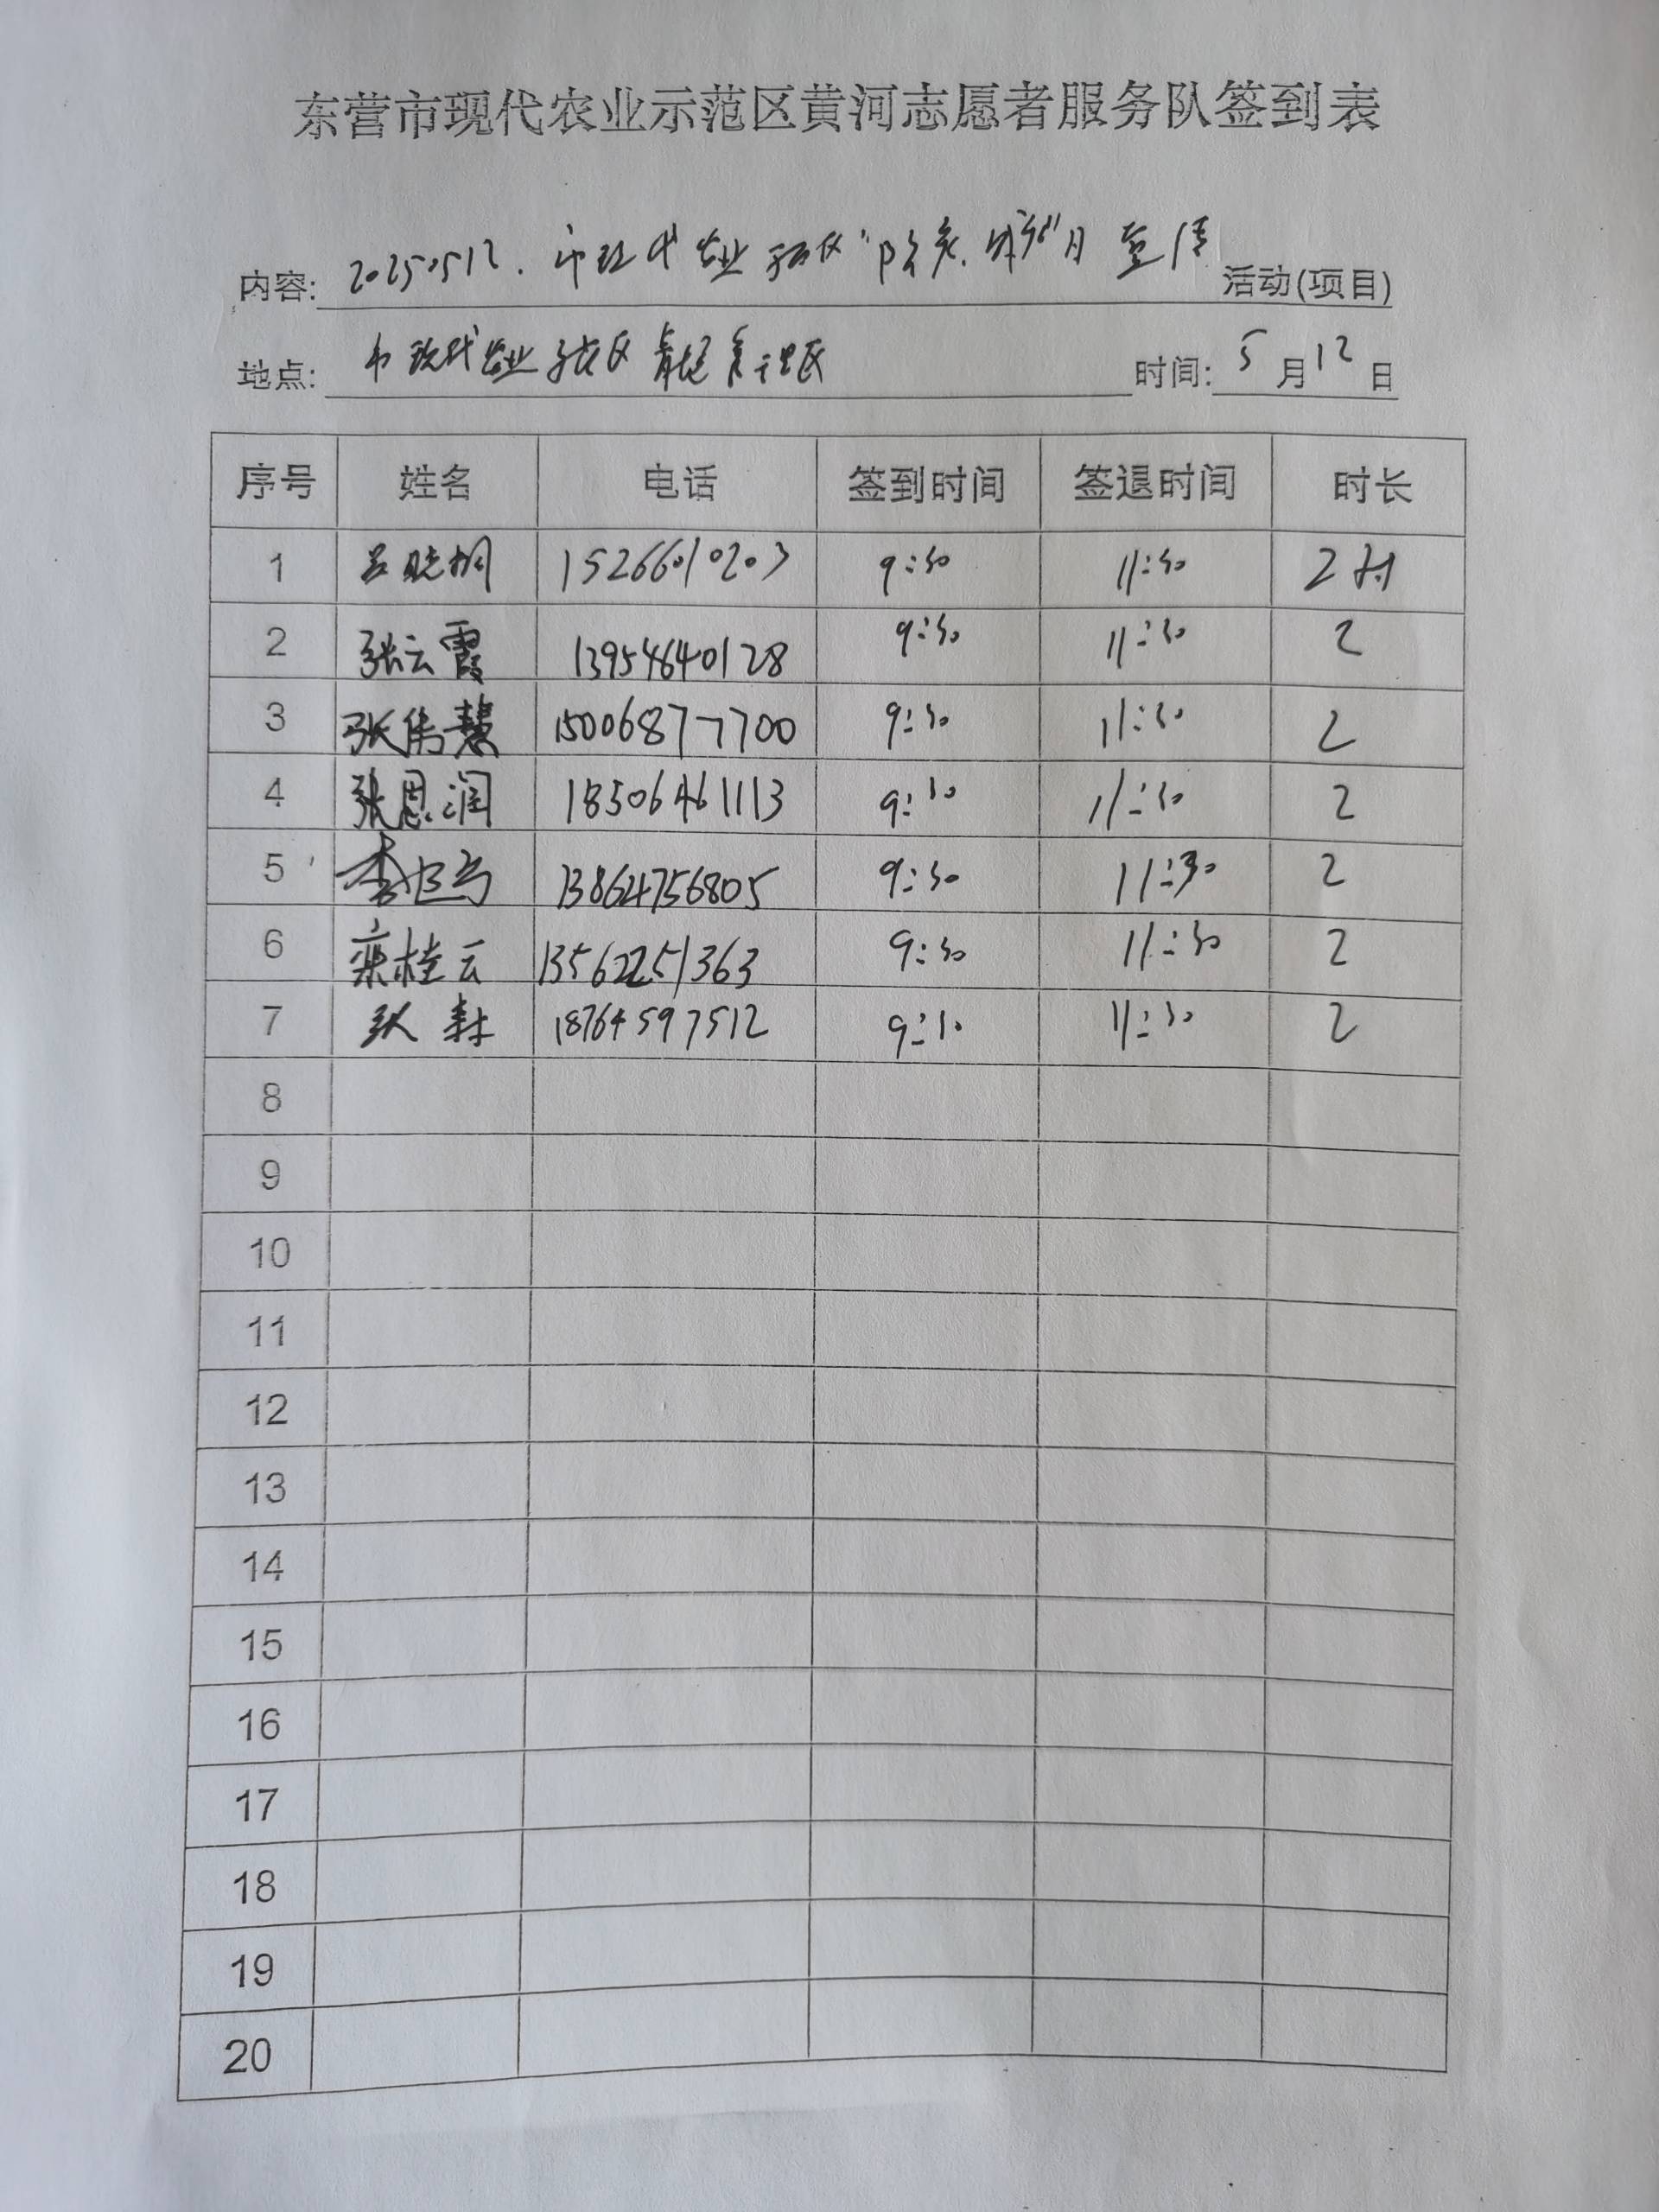 东营市现代农业示范区黄河志愿者服务队签到表
内容: 20250512. 市现代农业示范区"防灾减灾"月宣传 活动(项目)
地点: 市现代农业示范区 管理区 时间: 5月12日
序号 姓名 电话 签到时间 签退时间 时长
1 吕晓桐 15266010203 9:30 11:30 2时
2 张云霞 13954640128 9:30 11:30 2
3 张伟慧 15006877700 9:30 11:30 2
4 张恩润 18506461113 9:30 11:30 2
5 李 13864756805 9:30 11:30 2
6 栾桂云 13562251363 9:30 11:30 2
7 18764597512 9:30 11:30 2
8
9
10
11
12
13
14
15
16
17
18
19
20